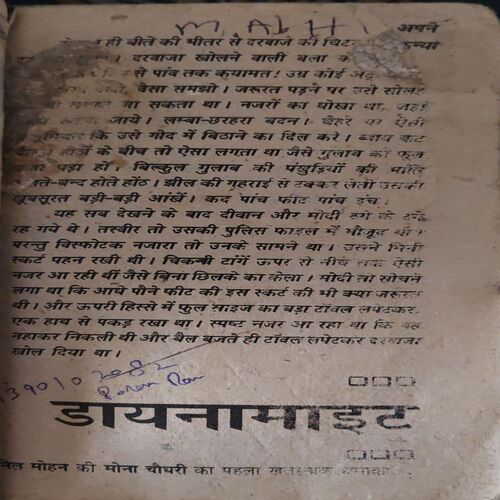 MABHI अपने
ही बीते की भीतर से दरवाजे की
दरवाजा खोलने वाली बला
से पांव तक कयामत! उम्र कोई
वैसा समझो। जरूरत पड़ने पर उसे सोलह
जा सकता था। नजरों का धोखा था
जाये। लम्बा-छरहरा बदन। चेहरे पर ऐसी
कि उसे गोद में बिठाने का दिल करे। ब्वाय कट
के बीच तो ऐसा लगता था जैसे गुलाब का फूल
पड़ा हो। बिल्कुल गुलाब की पंखुड़ियों की भांति
बन्द होते होंठ। झील की गहराई से टक्कर लेती उसकी
खूबसूरत बड़ी-बड़ी आंखें। कद पांच फीट पांच इंच।
यह सब देखने के बाद दीवान और मोदी ठगे के ठगे
रह गये थे। तस्वीर तो उसकी पुलिस फाइल में मौजूद थी।
परन्तु विस्फोटक नजारा तो उनके सामने था। उसने मिनी
स्कर्ट पहन रखी थी। चिकनी टांगें ऊपर से नीचे तक ऐसी
नजर आ रही थीं जैसे बिना छिलके का केला। मोदी तो सोचने
लगा था कि आधे पौने फीट की इस स्कर्ट की भी क्या जरूरत
थी। और ऊपरी हिस्से में फुल साइज का बड़ा टॉवल लपेटकर
एक हाथ से पकड़ रखा था। स्पष्ट नजर आ रहा था कि वह
नहाकर निकली थी और बैल बजते ही टॉवल लपेटकर दरवाजा
खोल दिया था।
डायनामाइट
मोहन की मोना चौधरी का पहला